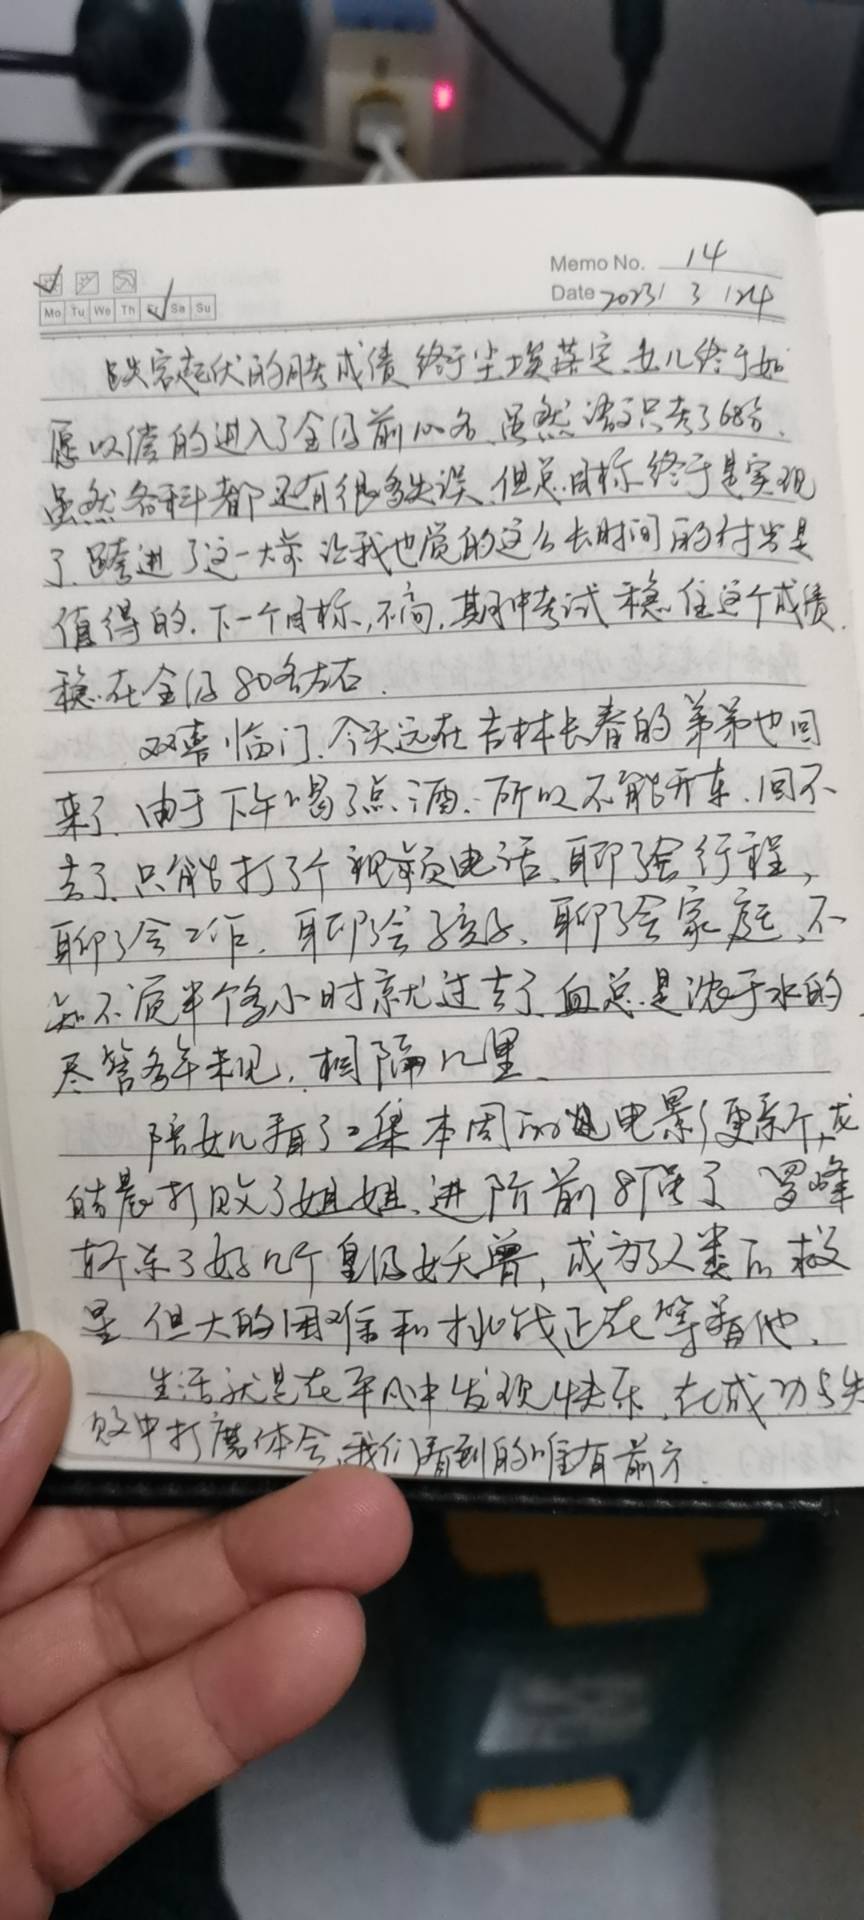 Memo No. 14
Mo Tu We Th Fr Sa Su
Date 2023 / 3 / 24
跌宕起伏的月考成绩终于尘埃落定、女儿终于如
愿以偿的进入了全级前100名、虽然语文只考了68分、
虽然各科都还有很多失误、但总目标终于是实现
了、跨进了这一大步 让我也觉的这么长时间的付出是
值得的、下一个目标,不高,期中考试稳住这个成绩、
稳在全级80名左右.
双喜临门、今天远在吉林长春的弟弟也回
来了、由于下午喝了点酒、所以不能开车、回不
去了、只能打了个视频电话、聊了会行程,
聊了会工作、聊了会孩子、聊了会家庭、不
知不觉半个多小时就过去了、血总是浓于水的、
尽管多年未见,相隔几里、
陪女儿看了2集本周的电影更新,
打败了姐姐、进阶前8强了 罗峰
斩杀了好几个皇级妖兽,成为了人类的救
星 但大的困难和挑战正在等着他、
生活就是在平凡中发现快乐、在成功与失
败中打磨体会、我们看到的唯有前方.